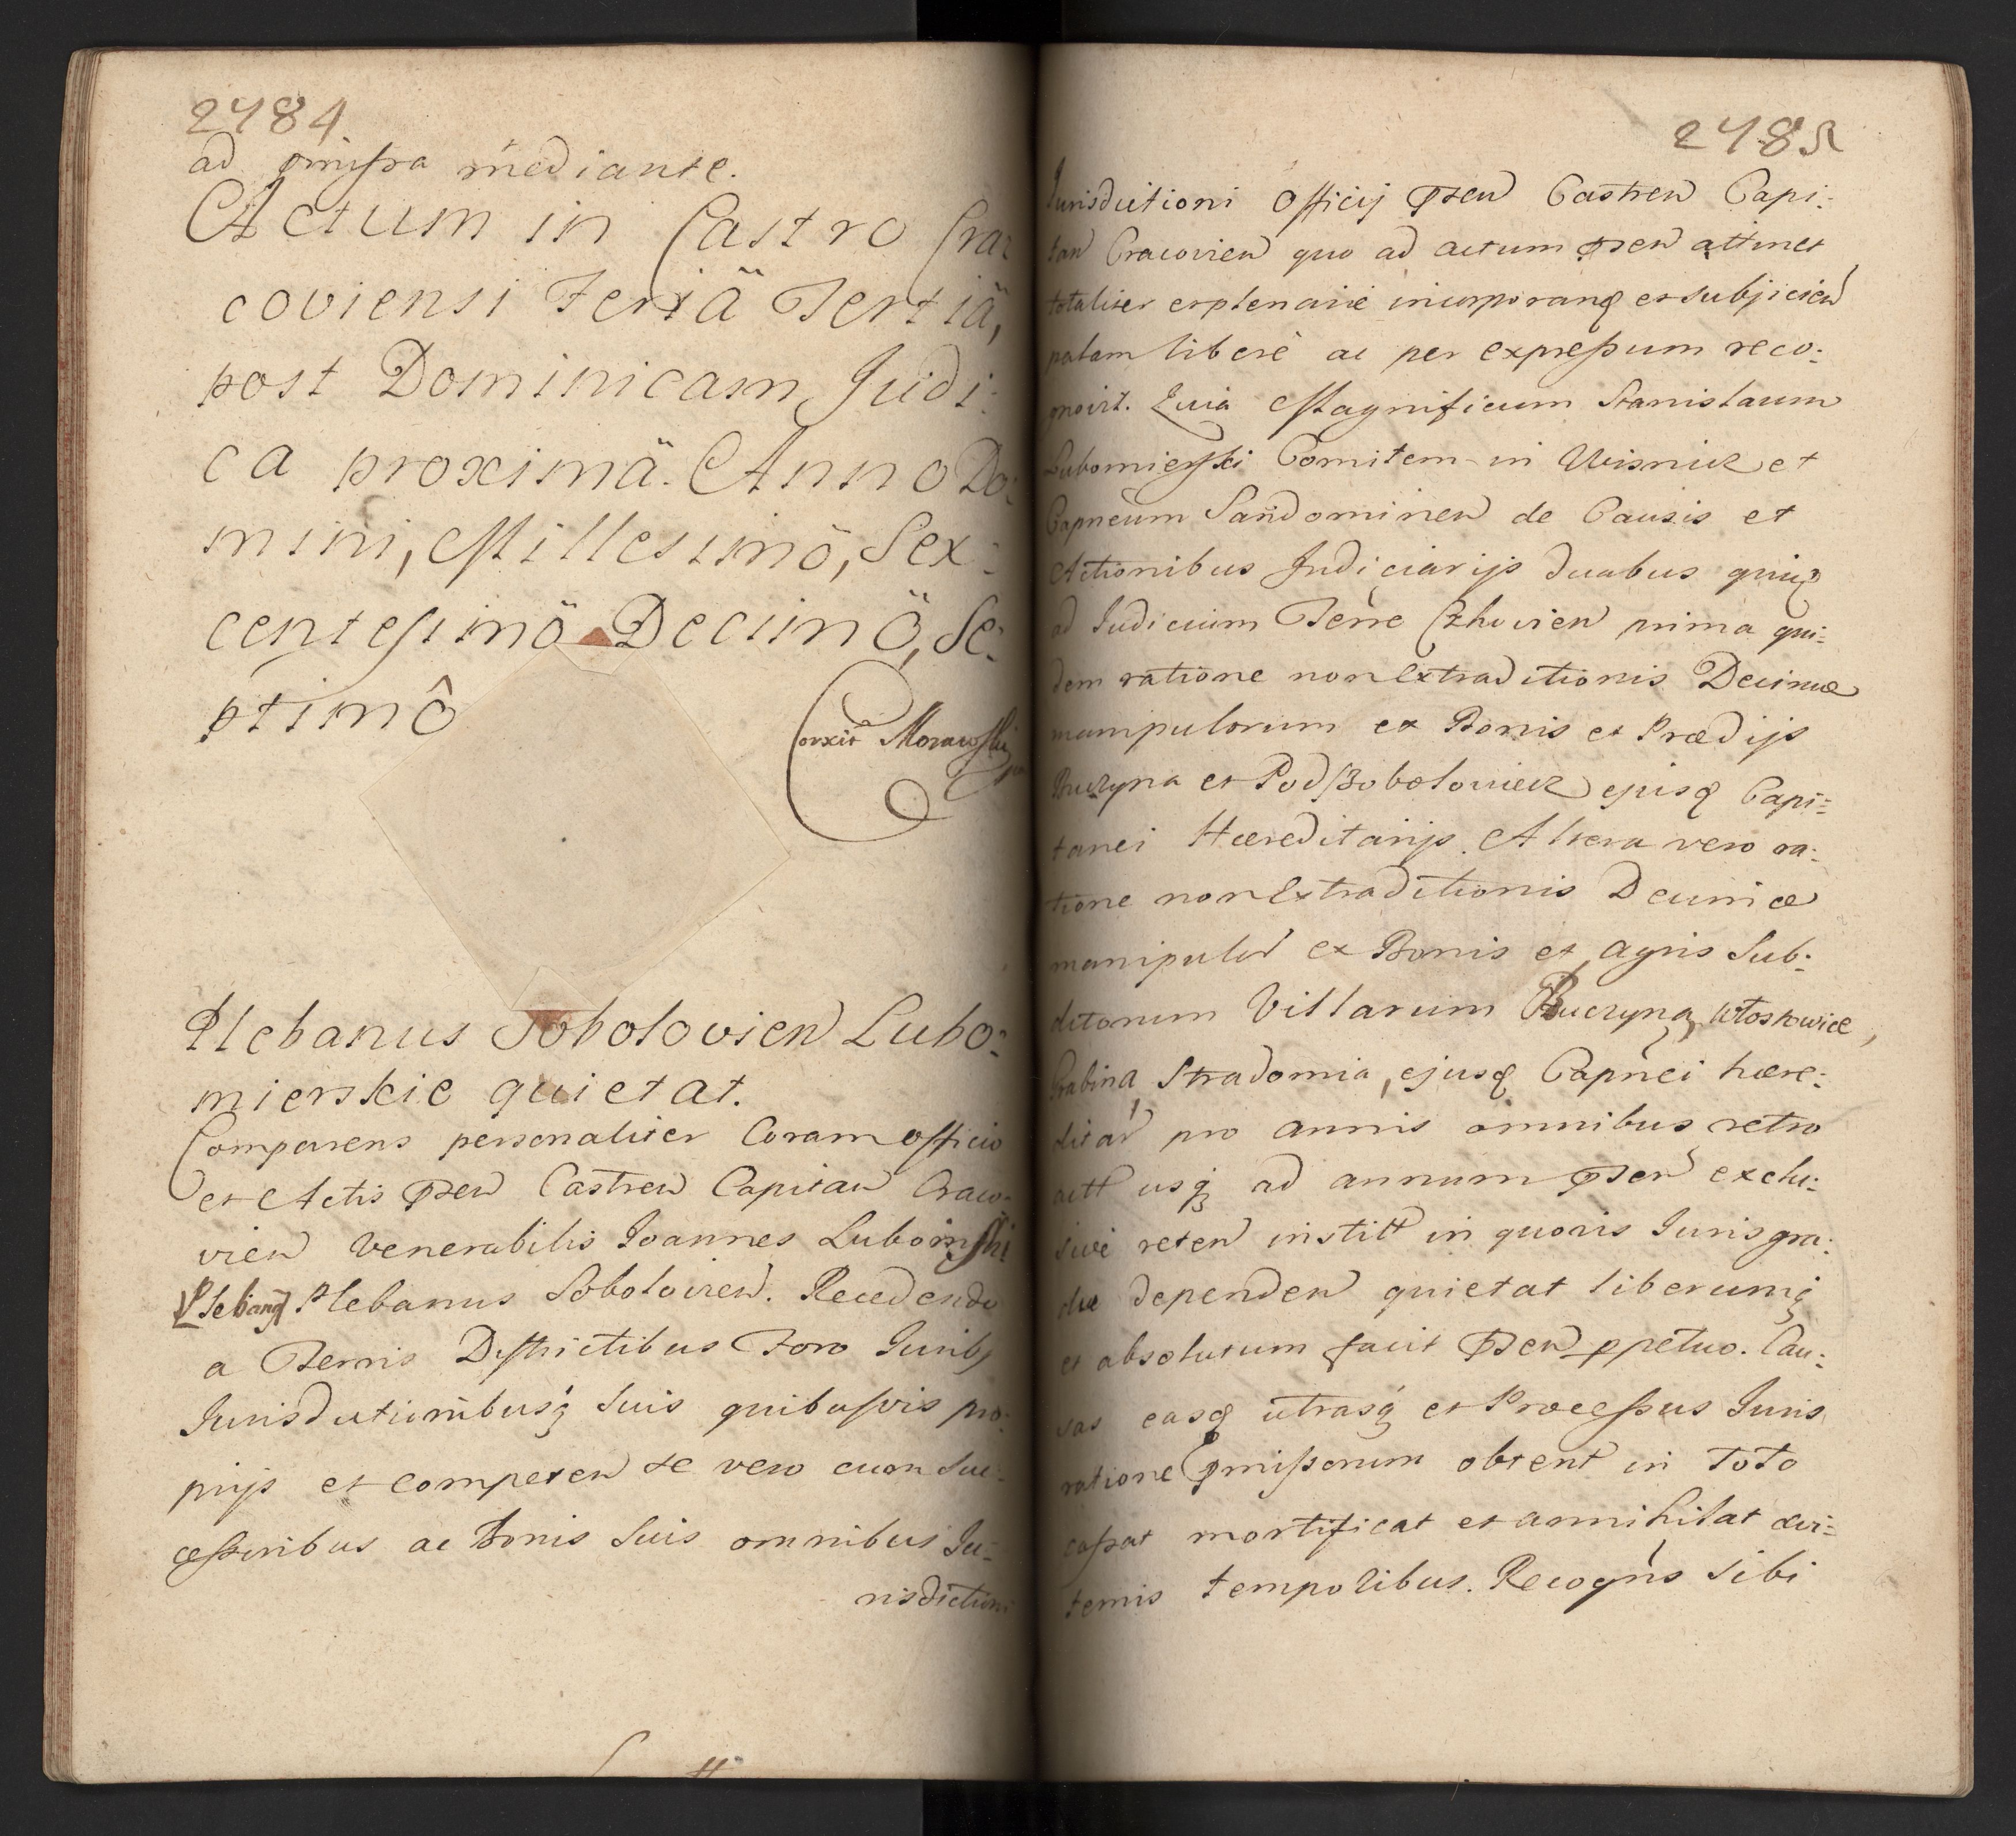 2484
ad pmissa mediante.
Actum in Castro Cra:
coviensi Feriâ Tertiâ,
post Dominicam Judi:
ca proximâ. Anno Do:
mini, Millesimô, Sex:
centesimô Decimô, Se:
ptimô
Corxit Morawski
Plebanus Sobolovien Lubo:
mierskie quietat.
Comparens personaliter Coram officio
et Actis psen Castren Capitan Craco:
vien Venerabilis Joannes Lubomski
Plebanus Sobolovien. Recedendo
a Terris Districtibus Foro Juribq
Jurisdictionibusq suis quibusvis pro:
prijs et competen se vero cum suc:
cessoribus ac Bonis suis omnibus Ju:
risdictioni
2485
Jurisdictioni Officij psen Castren Capi:
tan Cracovien quo ad actum psen attinet
totaliter et plenarie incorporanq et subjicien
palam liberè ac per expressum reco:
gnovit. Quia Magnificum Stanislaum
Lubomierski Comitem in Wisnicz et
Capneum Sandomirien de Causis et
Actionibus Judiciarijs duabus
ad Judicium Terre Czhovien prima qui:
dem ratione non Extraditionis Decimæ
manipulorum ex Bonis et Prædijs
Buczyna et Podssobolowicz ejusq Capi:
tanei Hæreditarijs. Altera vero ra:
tione non Extraditionis Decimæ
manipulor ex Bonis et agris Sub:
ditorum Villarum Buczyna, Włoskowice,
Grabina, Stradomia, ejusq Capnei hære:
ditar pro annis omnibus retro
actt usq ad annum psen exclu:
sive reten institt in quovis Juris gra:
du dependen quietat liberumq
et absolutum facit psen ppetuo. Cau:
sas easq utrasq et Processus Juris
ratione pmissorum obtent in toto
cassat mortificat et annihilat ævi:
ternis temporibus. Recogns sibi